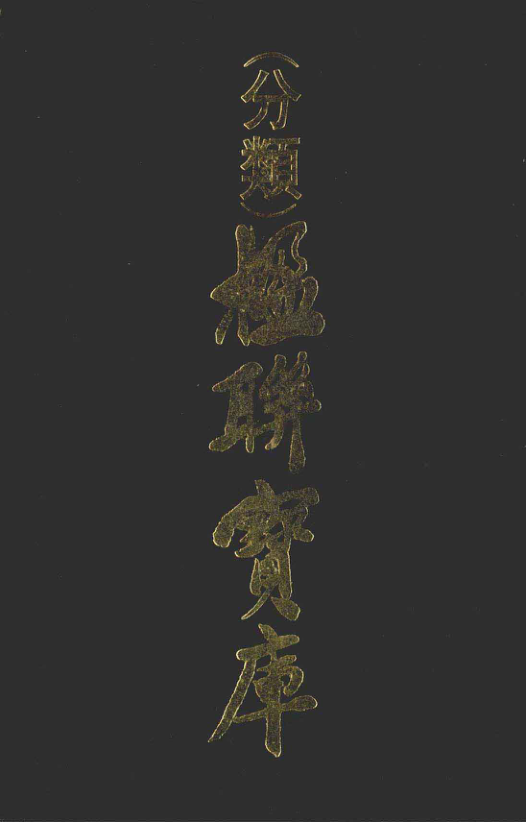 （分類）楹聯寶庫